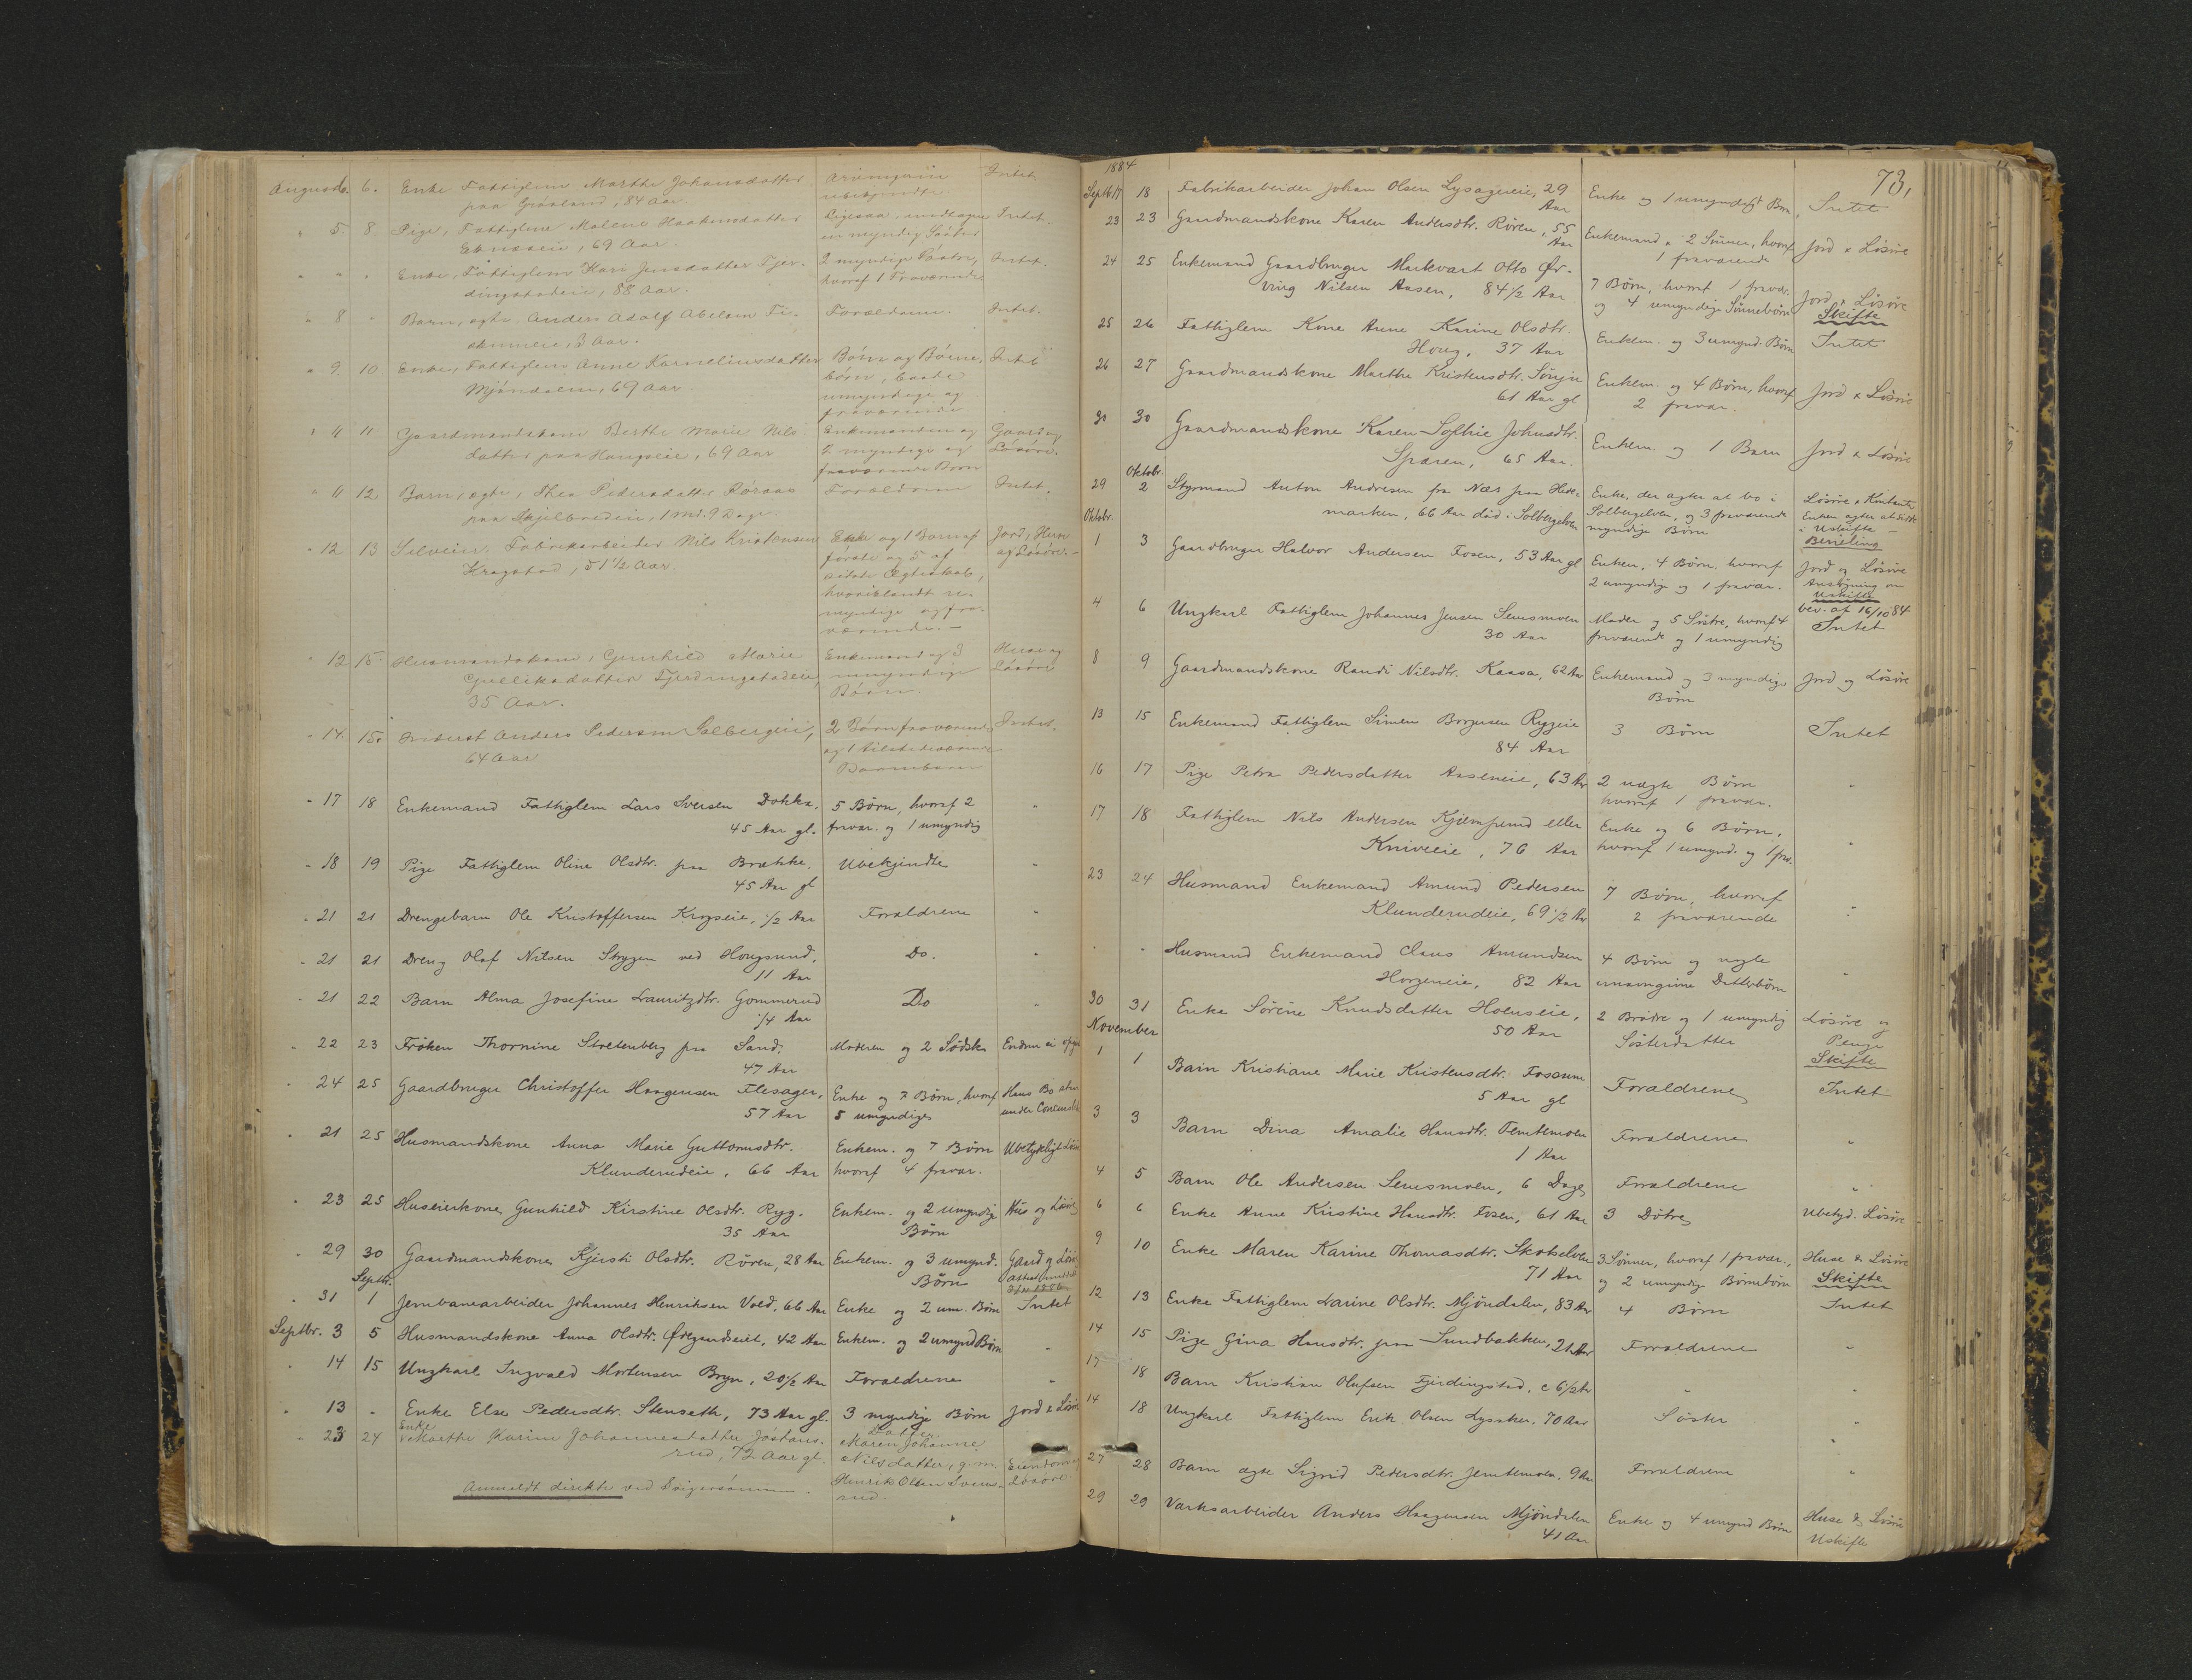 August 6. 6. Enke Fattiglem Marthe Johansdatter Arvingerne Intet
paa Graaland, 84 Aar. ubekjendte
" 5. 8. Pige, Fattiglem Malene Haakensdatter Ligesaa, undtagen Intet.
69 Aar. en myndig Søster
" " " Enke, Fattiglem Kari Jensdatter Fjer- 2 myndige Døttre, Intet.
dingstadeie, 88 Aar. hvoraf 1 Fraværende
" 8 " Barn, ægte Anders Adolf Abelsen Ti- Forældrene. Intet.
3 Aar.
" 9. 10 Enke, Fattiglem Anne Korneliusdatter Børn og Børne- Intet
Mjøndalen, 69 Aar. børn, baade
umyndige og
fraværende
" 11 11 Gaardmandskone Berthe Marie Nils- Enkemanden og Gaard og
datter paa Hougseie, 69 Aar 2 myndige og Løsøre.
fraværende Børn
" 11 12 Barn, ægte, Thea Pedersdatter Røraas Forældrene Intet.
paa Skjelbredeie, 1 Md. 9 Dage.
" 12 13 Selveier Fabrikarbeider Nils Kristensen Enke og 1 Barn af Jord, Huse
Kragstad, 51 1/2 Aar. første og 5 af og Løsøre.-
sidste Ægteskab,
hvoriblandt u-
myndige og fra-
værende. -
" 12 15. Husmandskone, Gunhild Marie Enkemand og 3 Huse og
Gulliksdatter Fjerdingstadeie, umyndige Løsøre
35 Aar. Børn.
" 14. 15. Inderst Anders Pedersen Solbergeie, 2 Børn fraværende Intet.
64 Aar og 1 tilstedeværende
Barnebarn
" 17 18 Enkemand Fattiglem Lars Iversen Dokka, 5 Børn, hvoraf 2 "
45 Aar gl. fravær. og 1 umyndig
" 18 19 Pige Fattiglem Oline Olsdtr. paa Brække, Ubekjendte "
45 Aar gl
" 21 21 Drengebarn Ole Kristoffersen Krogseie, 1/2 Aar Forældrene "
" 21 21 Dreng Olaf Nilsen Strygen ved Hougsund, Do. "
11 Aar
" 21 22 Barn Alma Josefine Lauritzdtr. Gommerud Do "
1/4 Aar
" 22 23 Frøken Thornine Stretenberg paa Sand, Moderen og 2 Sødsk. Endnu ei
47 Aar
" 24 25 Gaardbruger Christoffer Haagensen Flesager, Enke og 7 Børn, hvoraf Hans Bo
57 Aar 5 umyndige under
" 21 25 Husmandskone Anna Marie Guttormsdtr. Enkem. og 7 Børn Ubetydeligt
Klunderudeie, 66 Aar hvoraf 4 fravær.
" 23 25 Huseierkone Gunhild Kirstine Olsdtr. Ryg. Enkem. og 2 umyndige Hus og Løsøre
35 Aar Børn
" 29 30 Gaardmandskone Kjersti Olsdtr. Røren, 28 Aar Enkem. og 3 umynd. Gaard og Løs.
Septbr. Børn
" 31 1 Jernbanearbeider Johannes Henriksen Vold, 66 Aar Enke og 2 um. Børn Intet
Septbr. 3 5 Husmandskone Anna Olsdtr. 42 Aar Enkem. og 2 umynd Børn "
" 14 15 Ungkarl Ingvald Mortensen Bryn, 20 1/2 Aar Forældrene "
" 13 " Enke Else Pedersdtr. Stenseth, 73 Aar gl. 3 myndige Børn Jord & Løsøre
" 23 24 Enke Marthe Karine Johannesdatter Datter
rud, 72 Aar gl. Maren Johanne
Nilsdatter, g. m. Eiendom
Anmeldt direkte ved Svigersønnen. Henrik Olsen Løsøre
rud.
1884 73,
Sept 16/17 18 Fabrikarbeider Johan Olsen Lysagereie, 29 Enke og 1 umyndigt Barn, Intet
Aar
23 23 Gaardmandskone Karen Andersdtr. Røren, 55 Enkemand & 2 Sønner, hvoraf Jord & Løsøre
Aar 1 fraværende
24 25 Enkemand Gaardbruger Markvart Otto Ør- 7 Børn, hvoraf 1 fravær. Jord & Løsøre
ving Nilsen Aasen, 84 1/2 Aar og 4 umyndige Sønnebørn Skifte
25 26 Fattiglem Kone Anne Karine Olsdtr. Enkem. og 3 umynd. Børn Intet
Houg, 37 Aar
26 27 Gaardmandskone Marthe Kristensdtr. Enkem. og 4 Børn, hvoraf Jord & Løsøre
61 Aar gl 2 fravær.
30 30 Gaardmandskone Karen Sofhie Johnsdtr. Enkem. og 1 Barn Jord & Løsøre
Spæren, 65 Aar.
Oktobr.
29 2 Styrmand Anton Andresen fra Næs paa Hede- Enke, der agter at bo i Løsøre & Kontanter
marken, 66 Aar død i Solbergelven Solbergelven, og 3 fraværende Enken agter at sidde
Oktobr. myndige Børn i Uskifte
Bevilling
1 3 Gaardbruger Halvor Andersen Fosen, 53 Aar gl Enken, 4 Børn, hvoraf Jord og Løsøre
2 umyndige og 1 fravær. Ansøgning om
Uskifte
bev. af 16/10 84
4 6 Ungkarl Fattiglem Johannes Jensen Semsmoen Moder og 5 Søstre, hvoraf 4 Intet
30 Aar fraværende og 1 umyndig
8 9 Gaardmandskone Randi Nilsdtr. Kaasa, 62 Aar Enkemand og 3 myndige Jord og Løsøre
Børn
13 15 Enkemand Fattiglem Simen Borgersen Ryggeie 3 Børn Intet
84 Aar
16 17 Pige Petra Pedersdatter Aaseneie, 63 Aar 2 uægte Børn "
hvoraf 1 fravær.
17 18 Fattiglem Nils Andersen eller Enke og 6 Børn, "
Kniveeie, 76 Aar hvoraf 1 umynd. og 1 fra.
23 24 Husmand Enkemand Amund Pedersen 7 Børn, hvoraf "
Klunderudeie, 69 1/2 Aar 2 fraværende
" " Husmand Enkemand Claus Amundsen 4 Børn og nogle "
Horgeneie, 82 Aar unavngivne Datterbørn
30 31 Enke Sørine Knudsdatter Hoenseie, 2 Brødre og 1 umyndig Løsøre og
50 Aar Søsterdatter Penge
November Skifte
1 1 Barn Kristiane Marie Kristensdtr. Fossum Forældrene Intet
5 Aar gl
3 3 Barn Dina Amalie Hansdtr. Temtemoen Forældrene "
1 Aar
4 5 Barn Ole Andersen Semsmoen, 6 Dage Forældrene "
6 6 Enke Anne Kristine Hansdtr. Fosen, 61 Aar 3 Døtre Ubetyd. Løsøre
9 10 Enke Maren Karine Thomasdtr. Skotselven 3 Sønner, hvoraf 1 fravær., Huse & Løsøre
71 Aar og 2 umyndige Børnebørn Skifte
12 13 Enke Fattiglem Larine Olsdtr. Mjøndalen, 83 Aar 4 Børn Intet
14 15 Pige Gina Hansdtr. paa Sundbakken, 21 Aar Forældrene "
17 18 Barn Kristian Olufsen Fjerdingstad, c 6 1/2 Ar " "
14 18 Ungkarl Fattiglem Erik Olsen Lysaker, 70 Aar Søster "
27 28 Barn ægte Sigrid Pedersdtr. Jemtemoen, 9 Aar Forældrene "
29 29 Værksarbeider Anders Haagensen Mjøndalen Enke og 4 umynd Børn Huse & Løsøre
41 Aar Uskifte